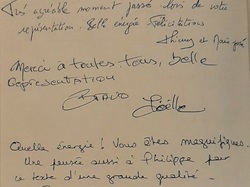 Très agréable moment passé lors de votre
représentation. Belle énergie. Félicitations
Thierry et Marie José
Merci à toutes tous, belle
représentation
BRAVO Joëlle
Quelle énergie ! Vous êtes magnifiques.
Une pensée aussi à Philippe pour
ce texte d'une grande qualité.